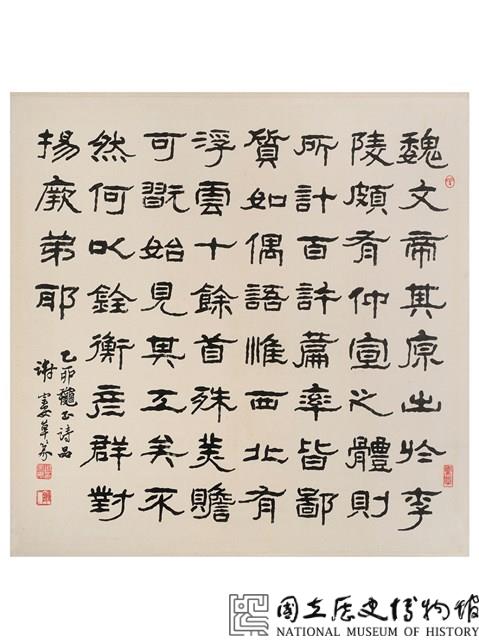 魏文帝其原出於李
陵頗有仲宣之體則
所計百許篇率皆鄙
質如偶語惟西北有
浮雲十餘首殊美贍
可翫始見其工矣不
然何以銓衡彥群對
揚厥弟耶
乙卯龝詩品
謝
國立歷史博物館
NATIONAL MUSEUM OF HISTORY